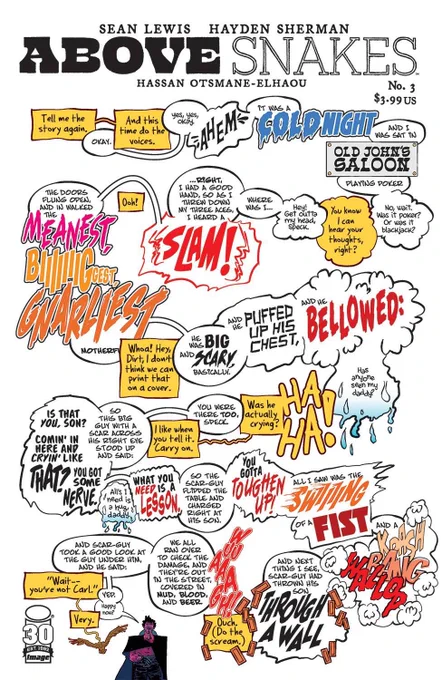 SEAN LEWIS HAYDEN SHERMAN
ABOVE SNAKES
HASSAN OTSMANE-ELHAOU
No. 3
$3.99 US
Tell me the
story again.
OKAY.
And this
time do the
voices.
yes, yes,
okay.
AHEM
IT WAS A
COLD NIGHT
AND I
WAS SAT IN
OLD JOHN'S
SALOON
PLAYING POKER
THE DOORS
FLUNG OPEN,
AND IN WALKED
THE
MEANEST,
BIIIIIGGEST,
GNARLIEST
MOTHERF
Ooh!
...RIGHT,
I HAD A GOOD
HAND, SO AS I
THREW DOWN
MY THREE ACES,
I HEARD A
SLAM!
WHERE
WAS I...
Hey!
Get outta
my head,
Speck.
You know
I can
hear your
thoughts,
right?
No, wait.
Was it poker?
Or was it
blackjack?
Whoa! Hey,
Dirt, I don't
think we can
print that
on a cover.
HE
WAS BIG
AND SCARY,
BASICALLY.
AND
HE
PUFFED
UP HIS
CHEST,
AND HE
BELLOWED:
Has
anyone
seen my
daddy?
HA
HA!
Was he
actually
crying?
YOU WERE
THERE TOO,
SPECK.
I like when
you tell it.
Carry on.
SO
THIS BIG
GUY WITH A
SCAR ACROSS
HIS RIGHT EYE
STOOD UP
AND SAID:
IS THAT
YOU, SON?
COMIN' IN
HERE AND
CRYIN' LIKE
THAT? YOU GOT
SOME
NERVE.
All I
need is
a hug,
daddy.
WHAT YOU
NEED IS A
LESSON.
SO THE
SCAR-GUY
FLIPPED THE
TABLE AND
CHARGED
RIGHT AT
HIS SON.
YOU
GOTTA
TOUGHEN
UP!
ALL I SAW WAS THE
SWIIIIING
OF A FIST
AND A
KRASH
BANG
WALLOP
AND NEXT
THING I SEE,
SCAR-GUY HAD
THROWN HIS
SON
THROUGH
A WALL
Ouch.
(Do the
scream.)
WE ALL
RAN OVER
TO CHECK THE
DAMAGE, AND
THEY'RE OUT
IN THE STREET,
COVERED IN
MUD, BLOOD,
AND BEER.
AND SCAR-GUY
TOOK A GOOD LOOK AT
THE GUY UNDER HIM,
AND HE SAID:
"Wait--
you're not Carl."
YEP.
happy
now?
Very.
30
image